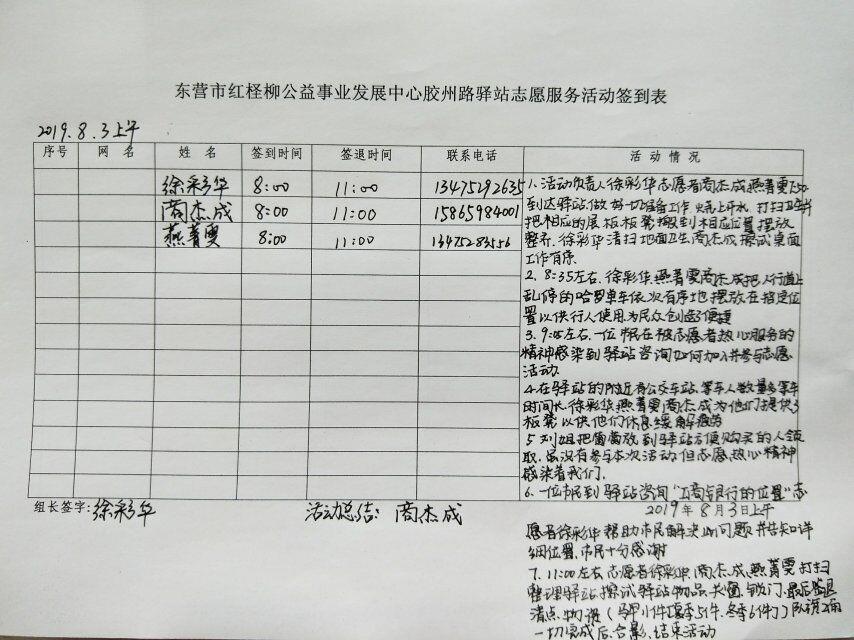 东营市红柽柳公益事业发展中心胶州路驿站志愿服务活动签到表
2019.8.3上午
序号 网 名 姓 名 签到时间 签退时间 联系电话 活 动 情 况
徐彩华 8:00 11:00 13475292635
商杰成 8:00 11:00 15865984001
燕菁雯 8:00 11:00 13475283556
1、活动负责人徐彩华志愿者商杰成燕菁雯7:50
到达驿站做好一切准备工作 烧上开水 打扫卫生并
把相应的展板板凳搬到相应位置摆放
整齐、徐彩华清扫地面卫生 商杰成擦试桌面
工作有序、
2、8:35左右、徐彩华、燕菁雯商杰成把人行道上
乱停的哈罗单车依次有序地摆放在指定位
置以供行人使用为民众创造便捷
3、9:05左右、一位市民在被志愿者热心服务的
精神感染到驿站咨询如何加入并参与志愿
活动
4、在驿站的附近有公交车站、等车人数量多等车
时间长、徐彩华燕菁雯商杰成为他们提供了
板凳以供他们休息缓解疲劳
5、刘姐把葡萄放到驿站方便购买的人领
取、虽没有参与本次活动但志愿、热心精神
感染着我们、
6、一位市民到驿站咨询“工商银行的位置”志
组长签字:徐彩华 活动总结:商杰成 2019年8月3日上午
愿者徐彩华帮助市民解决此问题并告知详
细位置、市民十分感谢
7、11:00左右、志愿者徐彩华、商杰成、燕菁雯打扫
整理驿站、擦试驿站物品、关窗、锁门、最后签退
清点物资(马甲小件夏季51件、冬季6件)队旗2面
一切完成后、合影、结束活动